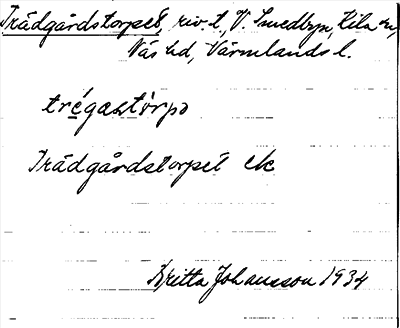 Trädgårdstorpet, riv. l., V. Smedbyn, Kila sn,
Näs hd, Värmlands l.
trégastòrpə
Trädgårdstorpet ek
Britta Johansson 1934